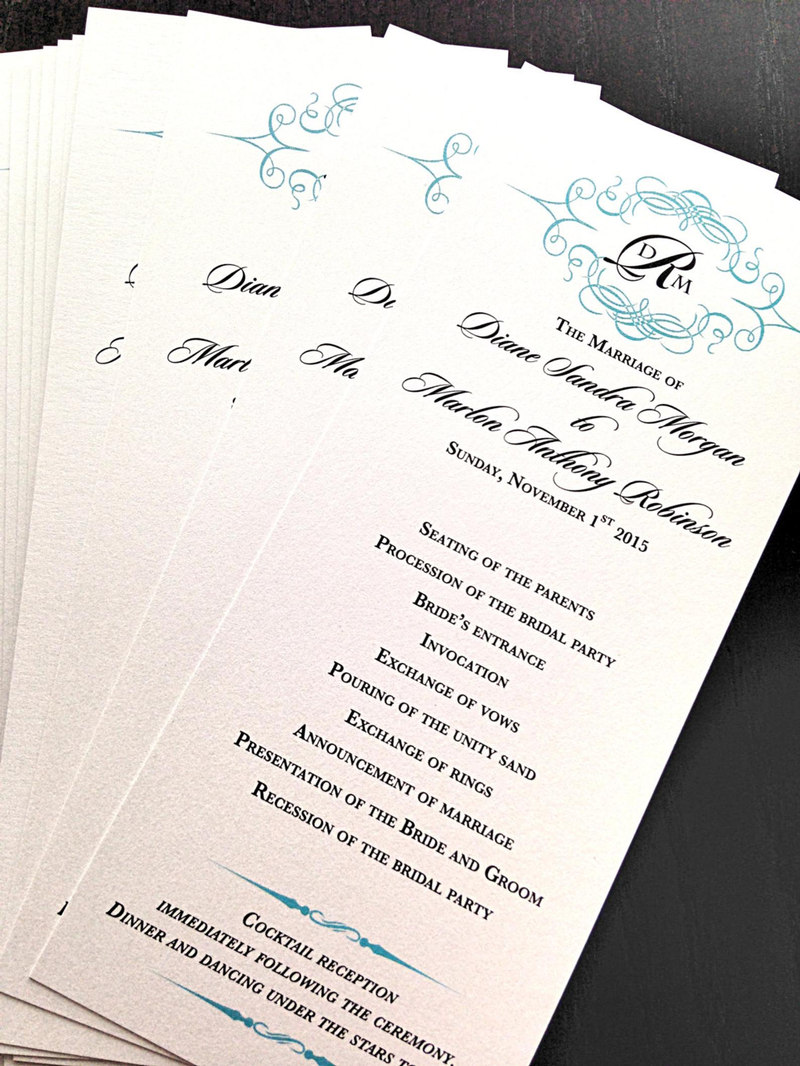 DRM
The Marriage of
Diane Sandra Morgan
to
Marlon Anthony Robinson
Sunday, November 1st 2015
Seating of the parents
Procession of the bridal party
Bride's entrance
Invocation
Exchange of vows
Pouring of the unity sand
Exchange of rings
Announcement of marriage
Presentation of the Bride and Groom
Recession of the bridal party
Cocktail reception
immediately following the ceremony.
Dinner and dancing under the stars
Dian
Mar
Di
Ma